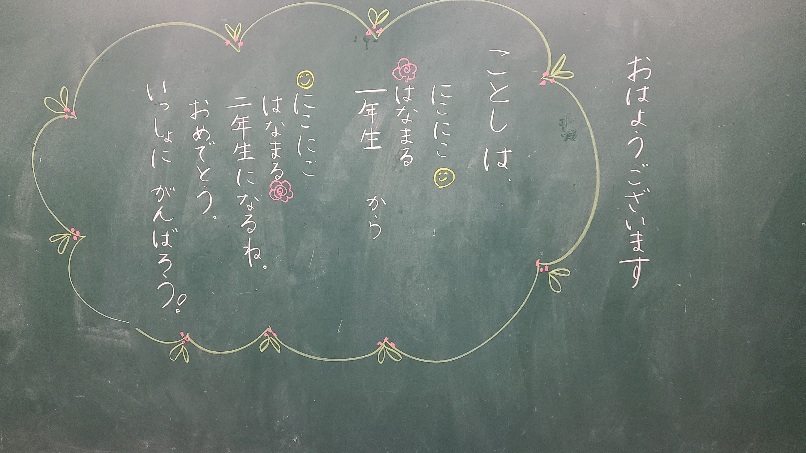 おはようございます
ことしは
にこにこ
はなまる
一年生 から
にこにこ
はなまる
二年生になるね。
おめでとう。
いっしょに がんばろう。